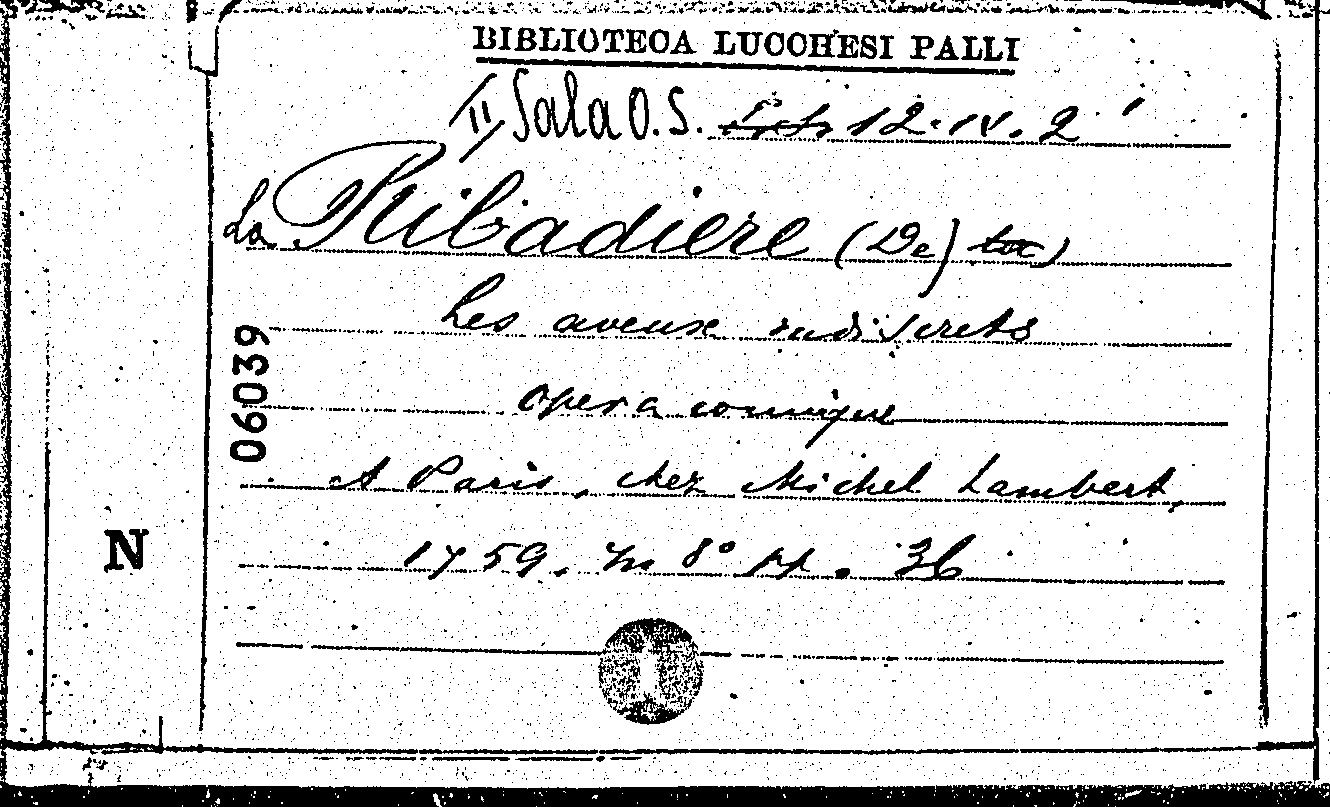 BIBLIOTECA LUCCHESI PALLI
II Sala O.S. 12. IV. 2
La Ribadiere (De)
Les aveux indiscrets
opera comique
A Paris, chez Michel Lambert,
1759. in 8° pp. 36
06039
N